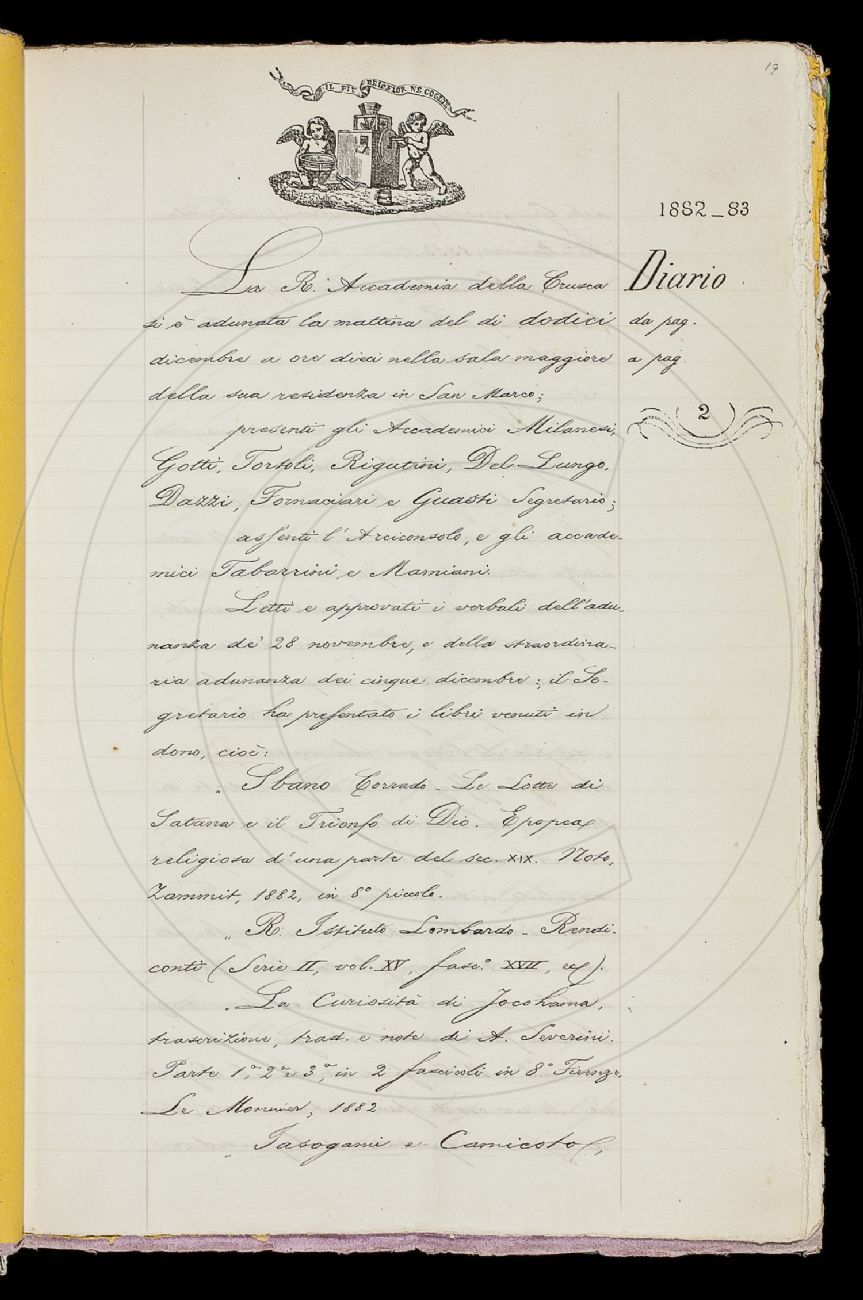 19
IL PIÙ BEL FIOR NE COGLIE
1882_83
Diario
da pag.
a pag.
2
La R. Accademia della Crusca
si è adunata la mattina del dì dodici
dicembre a ore dieci nella sala maggiore
della sua residenza in San Marco;
presenti gli Accademici Milanesi,
Gotti, Tortoli, Rigutini, Del-Lungo,
Dazzi, Fornaciari e Guasti Segretario;
assenti l'Arciconsolo, e gli accade-
mici Tabarrini e Mamiani.
Letti e approvati i verbali dell'adu-
nanza de' 28 novembre, e della straordina-
ria adunanza dei cinque dicembre; il Se-
gretario ha presentato i libri venuti in
dono, cioè:
„ Sbano Corrado - Le Lotte di
Satana e il Trionfo di Dio. Epopea
religiosa d'una parte del sec. XIX. Noto,
Zammit, 1882, in 8° piccolo.
„ R. Istituto Lombardo - Rendi-
conti (Serie II, vol. XV, fasc.° XVII,
„ La Curiosità di Jocohama,
trascrizione, trad. e note di A. Severini.
Parte 1ª, 2ª e 3ª, in 2 fascicoli in 8° Firenze,
Le Monnier, 1882
„ Jasogami e Camicoto,